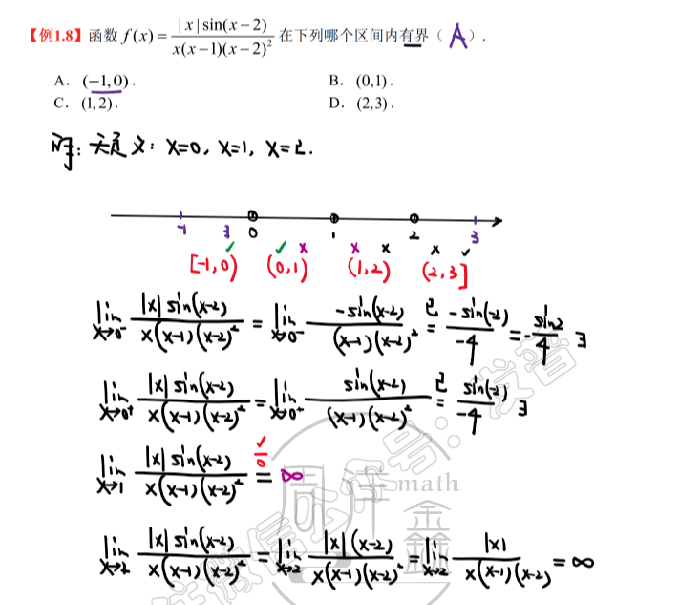 【例1.8】函数 f(x)=|x|sin(x−2)/x(x−1)(x−2)² 在下列哪个区间内有界（ A ）.
A. (−1,0). B. (0,1).
C. (1,2). D. (2,3).
解: 无定义: x=0, x=1, x=2.
-1 0 1 2 3
✓ ✓ × × × × ✓
[-1,0) (0,1) (1,2) (2,3]
lim x→0⁻ |x|sin(x-2)/x(x-1)(x-2)² = lim x→0⁻ -sin(x-2)/(x-1)(x-2)² = -sin(-2)/-4 = -sin2/4 ∃
lim x→0⁺ |x|sin(x-2)/x(x-1)(x-2)² = lim x→0⁺ sin(x-2)/(x-1)(x-2)² = sin(-2)/-4 ∃
lim x→1 |x|sin(x-2)/x(x-1)(x-2)² = ∞
✓/0
lim x→2 |x|sin(x-2)/x(x-1)(x-2)² = lim x→2 |x|(x-2)/x(x-1)(x-2)² = lim x→2 |x|/x(x-1)(x-2) = ∞
math